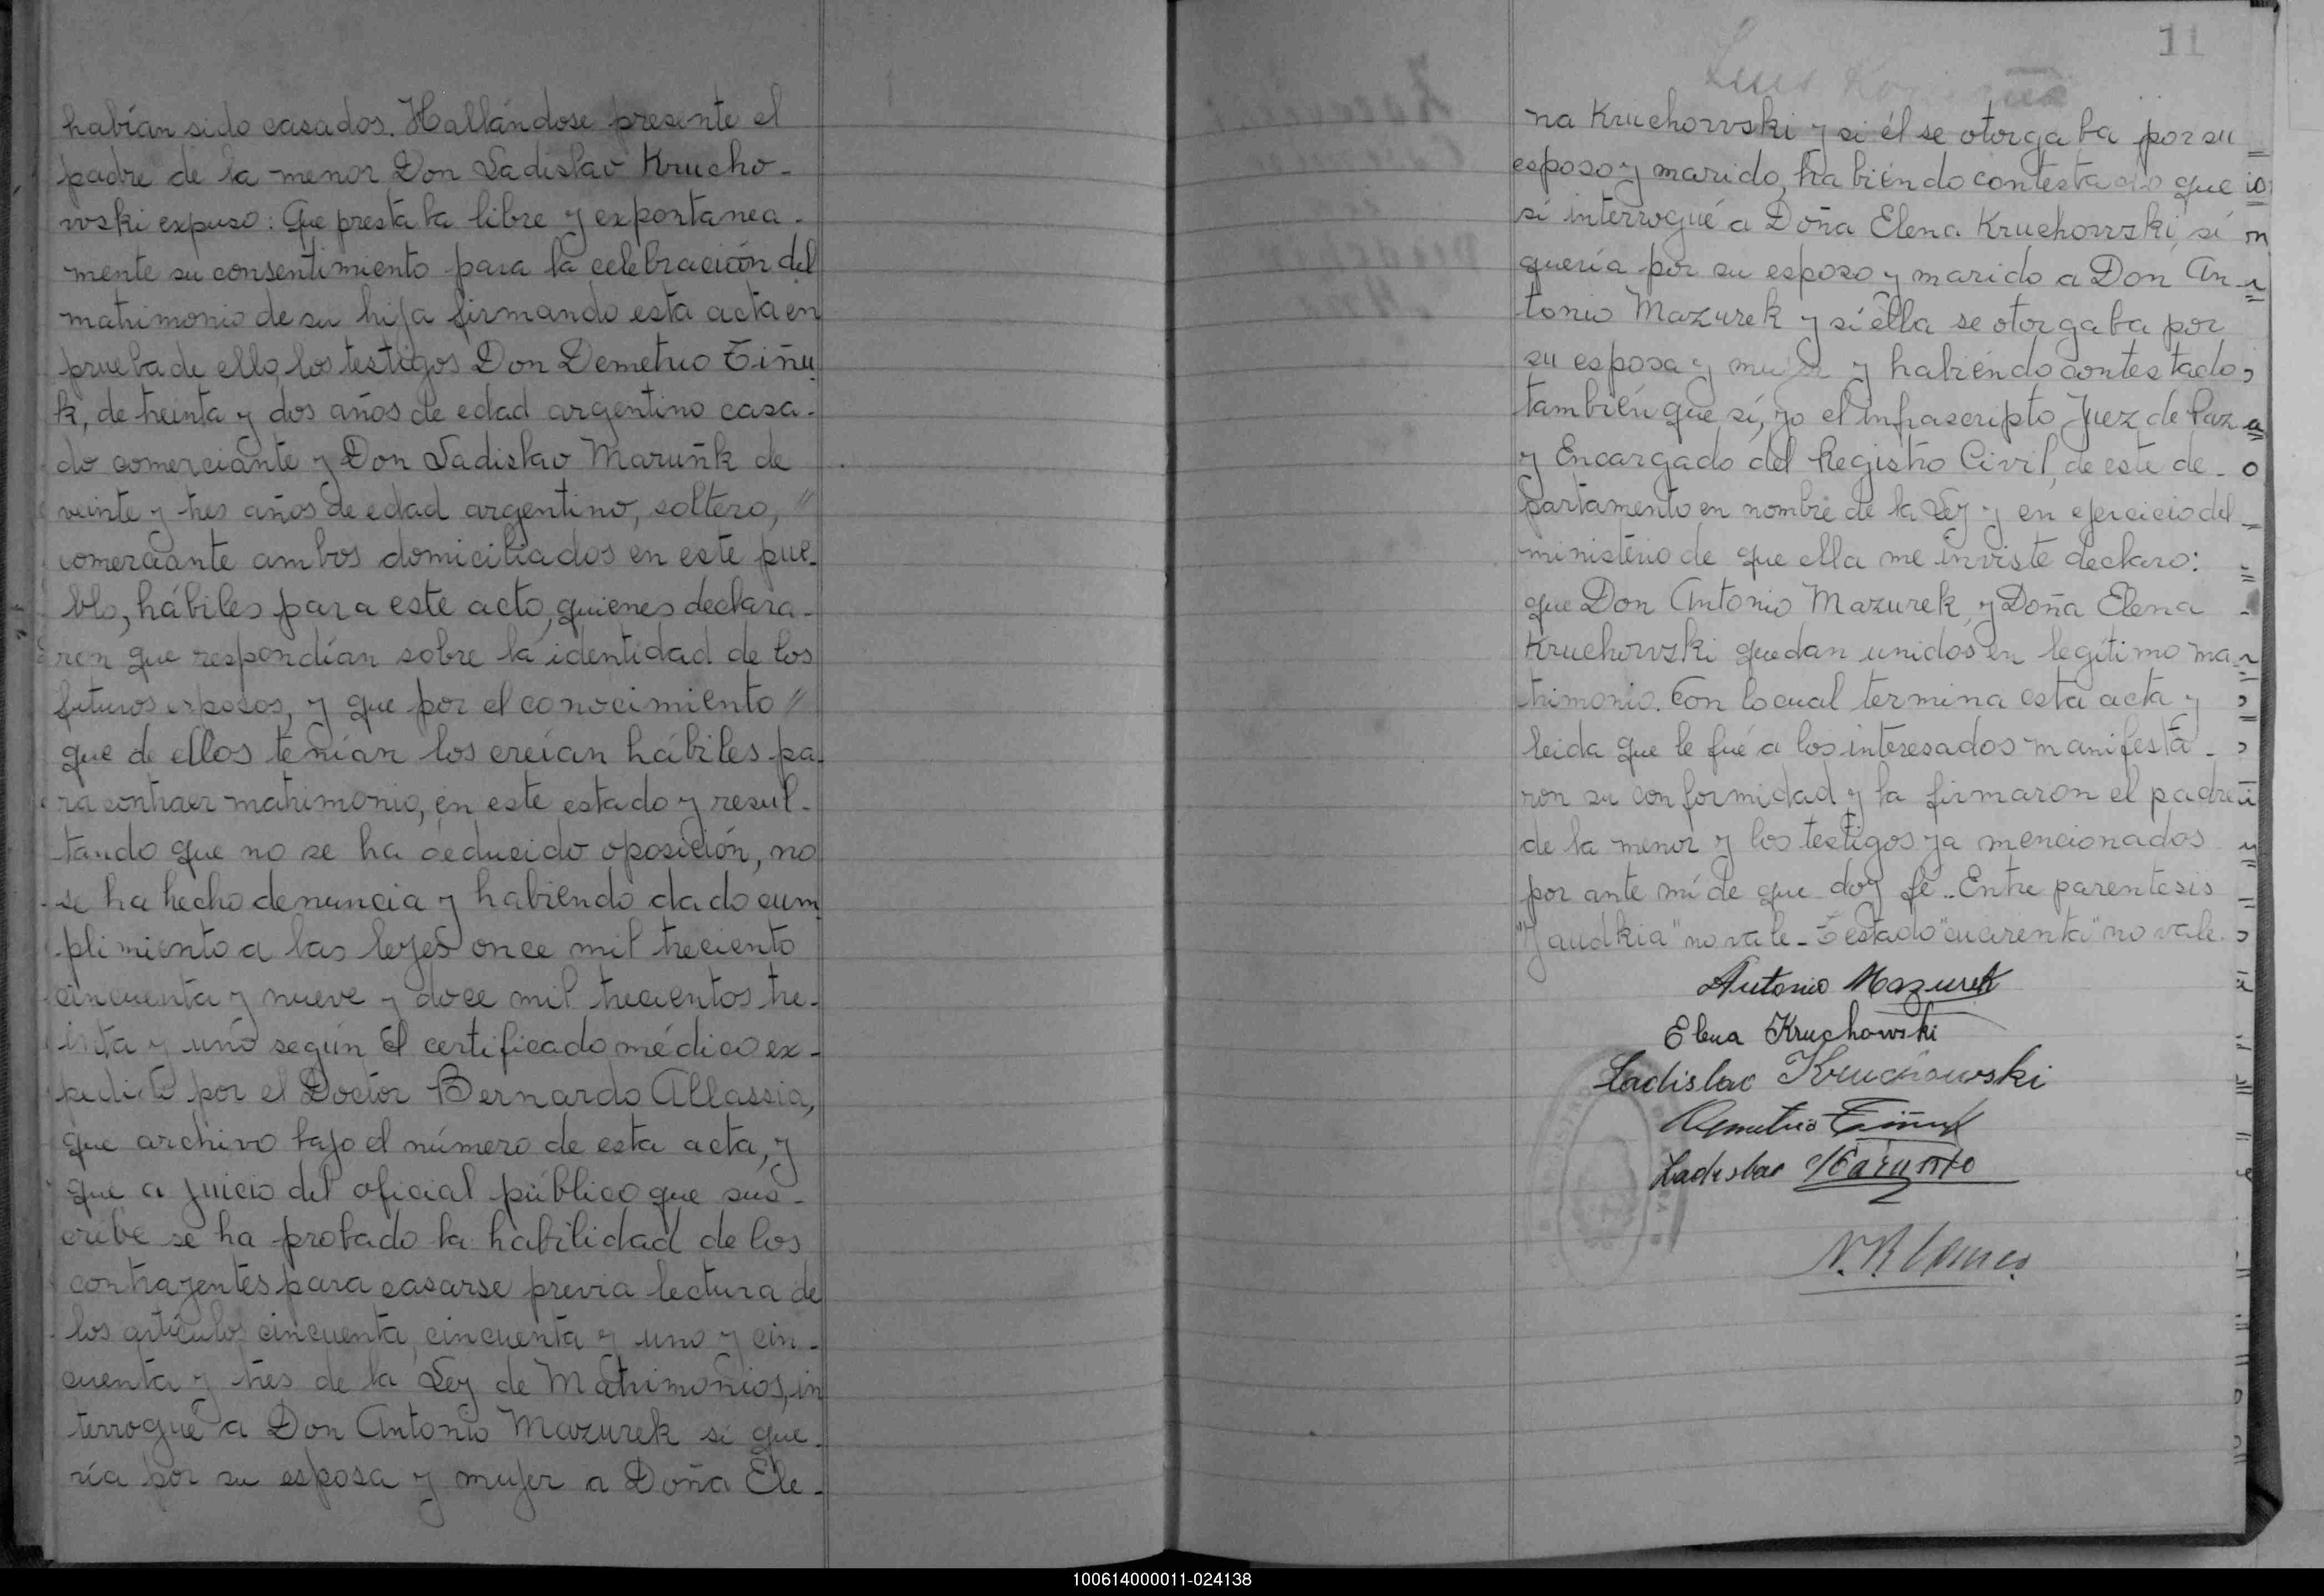 habían sido casados. Hallándose presente el
padre de la menor Don Ladislao Krucho-
wski expuso: Que prestaba libre y expontanea-
mente su consentimiento para la celebración del
matrimonio de su hija firmando esta acta en
prueba de ello, los testigos Don Demetrio Tiñu
k, de treinta y dos años de edad argentino casa-
do comerciante y Don Ladislao Maruñk de
veinte y tres años de edad argentino, soltero, //
comerciante ambos domiciliados en este pue-
blo, hábiles para este acto, quienes declara-
ron que respondían sobre la identidad de los
futuros esposos, y que por el conocimiento //
que de ellos tenían los creían hábiles pa-
ra contraer matrimonio, en este estado y resul-
tando que no se ha deducido oposición, no
se ha hecho denuncia y habiendo dado cum
plimiento a las leyes once mil treciento
cincuenta y nueve y doce mil trecientos tre-
inta y uno según el certificado médico ex-
pedido por el Doctor Bernardo Allassia,
que archivo bajo el número de esta acta, y
que a juicio del oficial público que sus-
cribe se ha probado la habilidad de los
contrayentes para casarse previa lectura de
los artículos cincuenta, cincuenta y uno y cin-
cuenta y tres de la Ley de Matrimonios, in
terrogué a Don Antonio Mazurek si que-
ría por su esposa y mujer a Doña Ele-
11
Luis
na Kruchowski y si él se otorgaba por su
esposo y marido, habiendo contestado que
sí interrogué a Doña Elena Kruchowski, si
quería por su esposo y marido a Don An-
tonio Mazurek y si ella se otorgaba por
su esposa y mujer y habiendo contestado
también que sí, yo el infrascripto Juez de Paz
y Encargado del Registro Civil, de este de-
partamento en nombre de la Ley y en ejercicio del
ministerio de que ella me inviste declaro:
que Don Antonio Mazurek, y Doña Elena
Kruchowski quedan unidos en legítimo ma-
trimonio. Con lo cual termina esta acta y
leida que le fué a los interesados manifesta-
ron su conformidad y la firmaron el padre
de la menor y los testigos ya mencionados
por ante mí de que doy fe.. Entre parentesis
"Yaudkia" no vale - Testado "cuarenta" no vale.
Antonio Mazurek
Elena Kruchowski
Ladislao Kruchowski
Demetrio Tiñuk
Ladislao
100614000011-024138